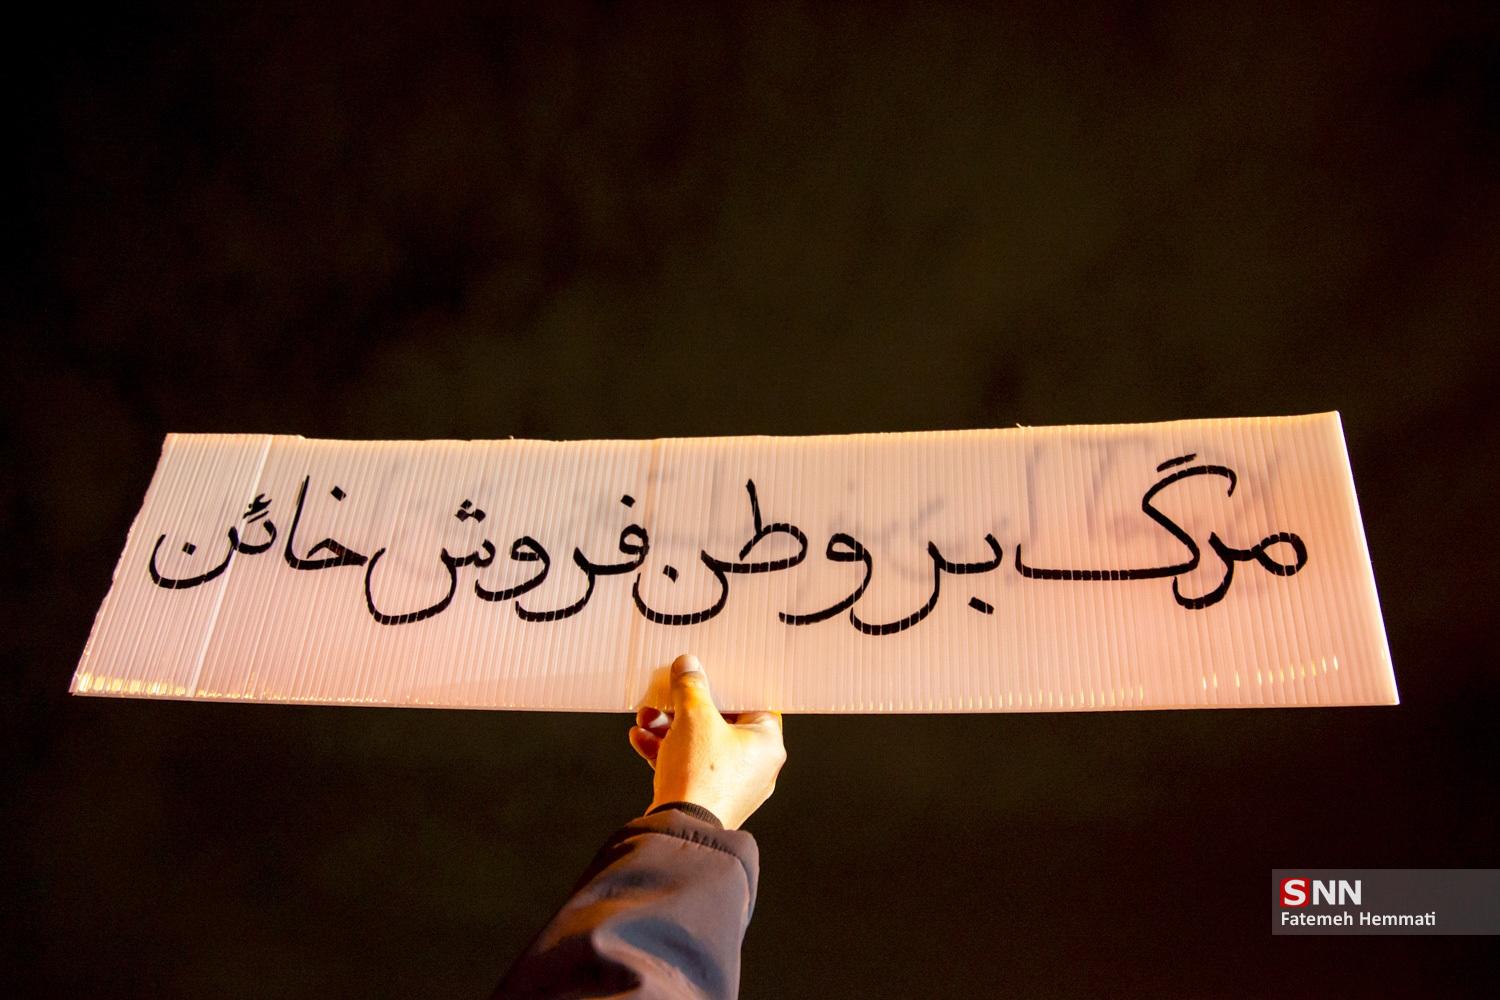 مرگ بر وطن فروش خائن
SNN
Fatemeh Hemmati